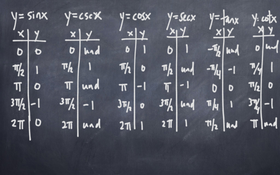 y=sinx y=cscx y=cosx y=secx y=tanx y=cotx
x y x y x y x y x y x y
0 0 0 und 0 1 0 1 -π/2 und 0 und
π/2 1 π/2 1 π/2 0 π/2 und -π/4 -1 π/4 1
π 0 π und π -1 π -1 0 0 π/2 0
3π/2 -1 3π/2 -1 3π/2 0 3π/2 und π/4 1
2π 0 2π und 2π 1 2π 1 π/2 und π und